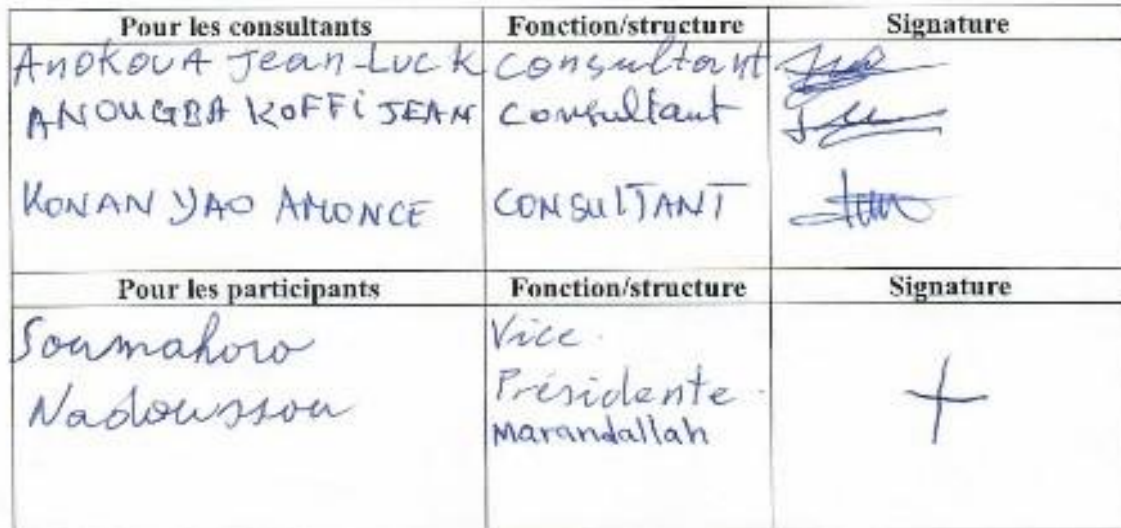 Pour les consultants Fonction/structure Signature
ANOKOUA Jean-Luck Consultant
ANOUGBA KOFFI JEAN Consultant
KONAN YAO AMONCE CONSULTANT
Pour les participants Fonction/structure Signature
Soumahoro Vice
Nadoussou Présidente
Marandallah